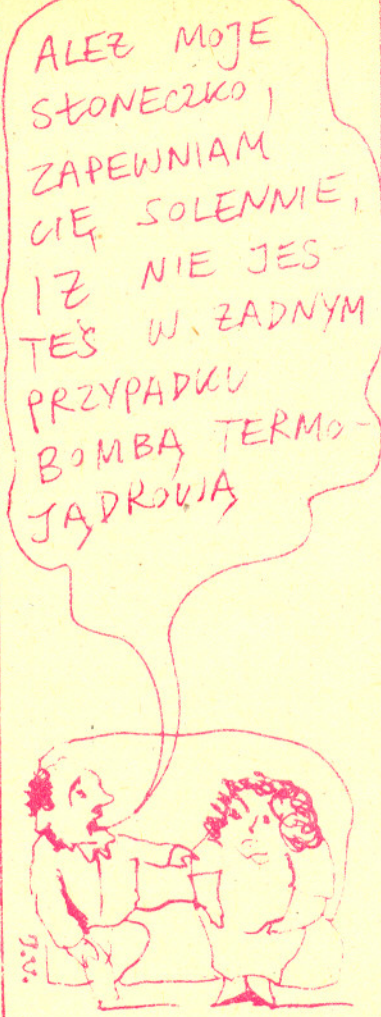 ALEŻ MOJE
SŁONECZKO,
ZAPEWNIAM
CIĘ SOLENNIE,
IŻ NIE JES-
TEŚ W ŻADNYM
PRZYPADKU
BOMBĄ TERMO-
JĄDROWĄ
J.V.